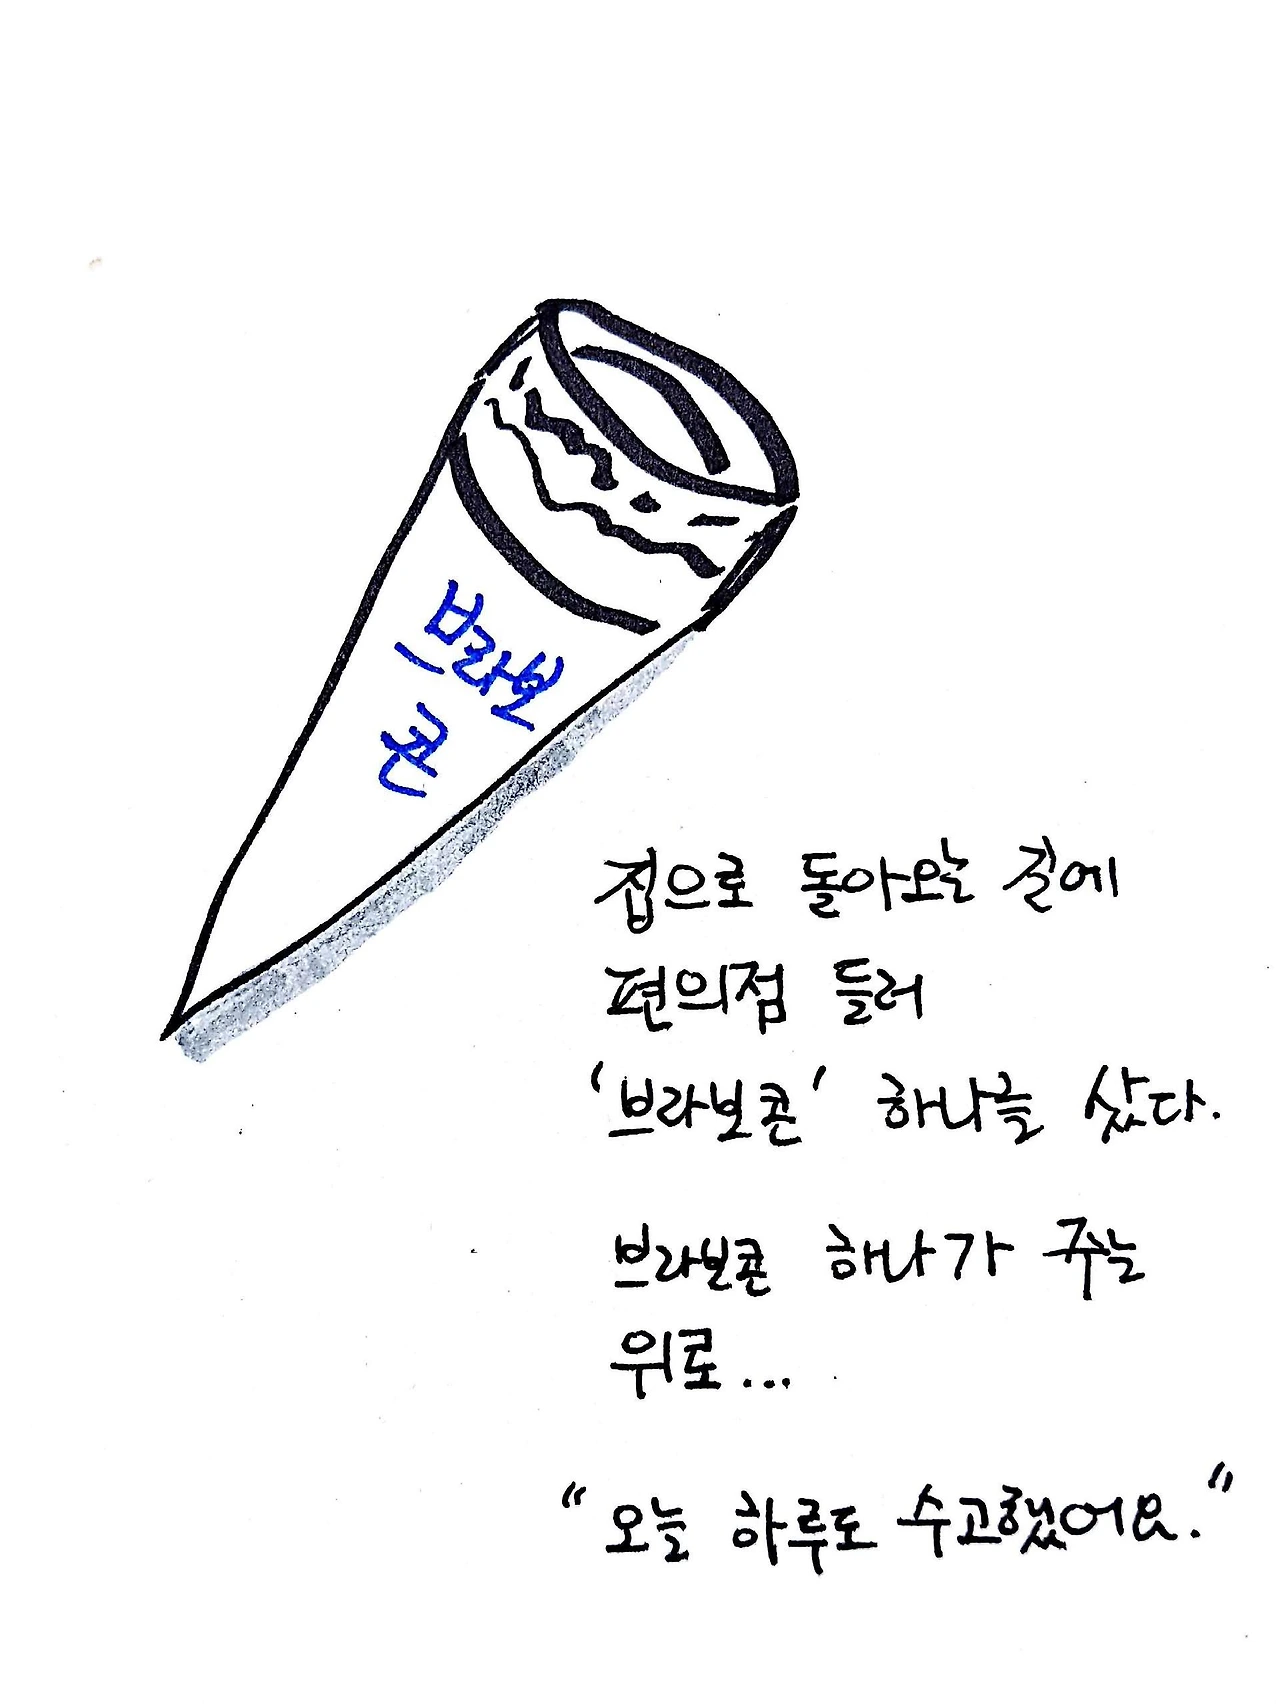 브라보
콘
집으로 돌아오는 길에
편의점 들러
'브라보콘' 하나를 샀다.
브라보콘 하나가 주는
위로...
"오늘 하루도 수고했어요."